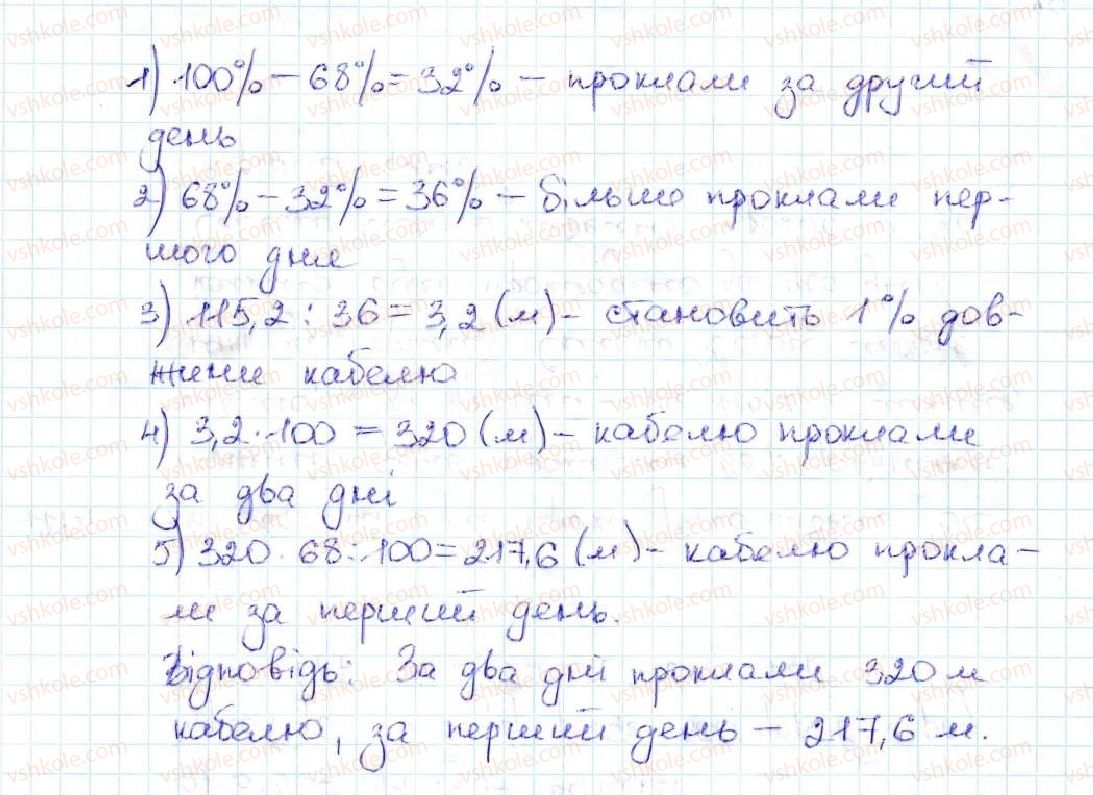 1) 100% – 68% = 32% – проклали за другий
день
2) 68% – 32% = 36% – більше проклали пер-
шого дня
3) 115,2 : 36 = 3,2 (м) – становить 1% дов-
жини кабелю
4) 3,2 · 100 = 320 (м) – кабелю проклали
за два дні
5) 320 · 68 : 100 = 217,6 (м) – кабелю прокла-
ли за перший день.
Відповідь: За два дні проклали 320 м
кабелю, за перший день – 217,6 м.